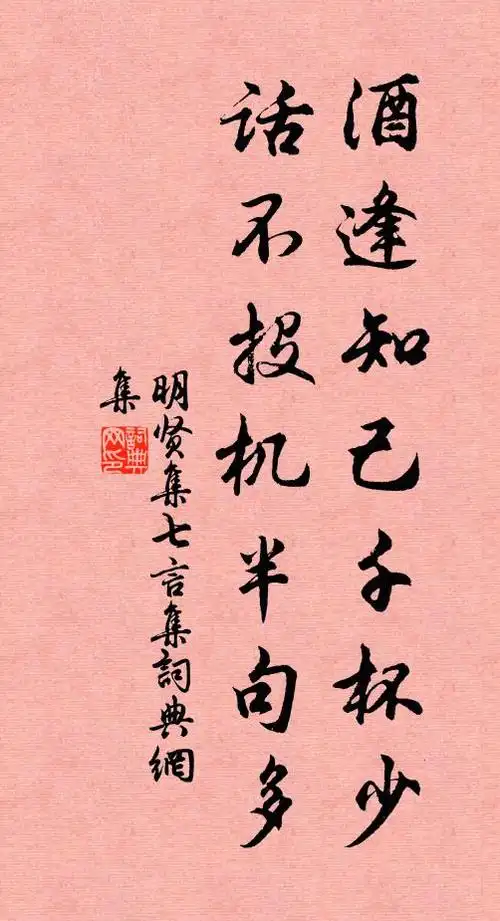 酒逢知己千杯少
话不投机半句多
明贤集七言集詞典網
集
詞典
网印